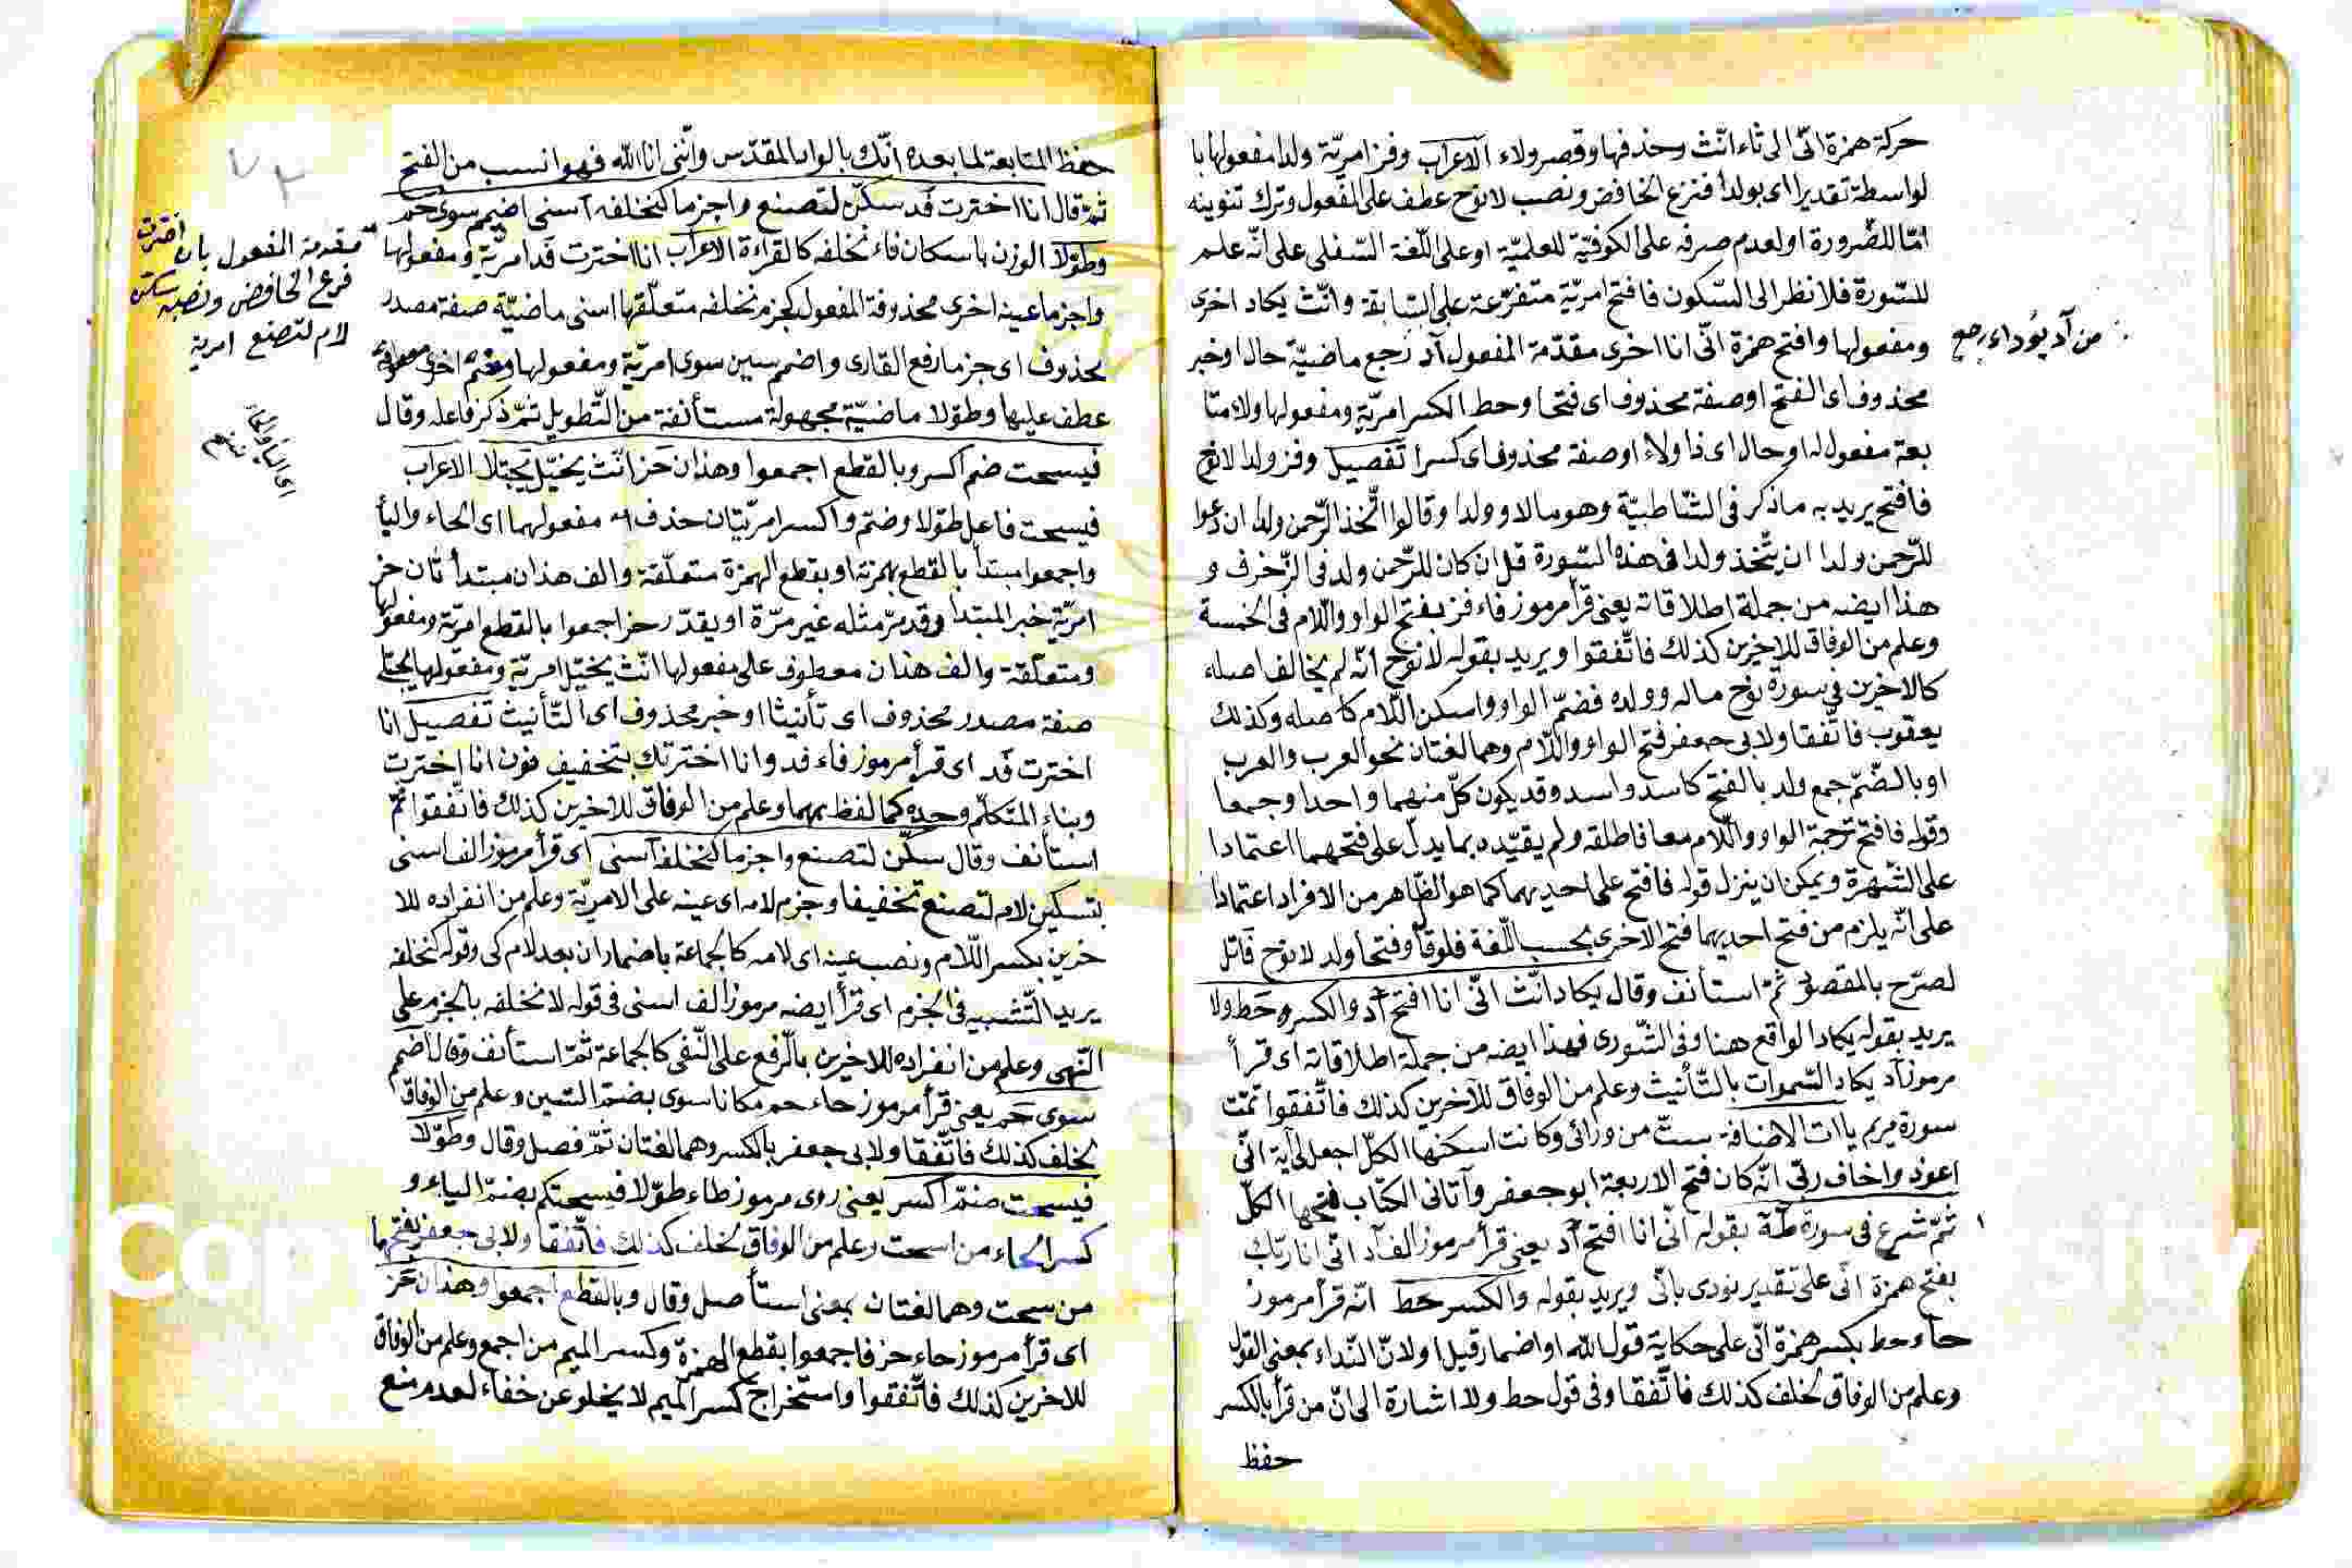 حركة همزة انّى الى ثاء انّث وحذفها وقصر ولاء الاعراب وفز امريّة ولدا مفعولها با
لواسطة تقديرا اى بولدا فنزع الخافض ونصب لا نوح عطف على المفعول وترك تنوينه
امّا للضّرورة او لعدم صرفه على الكوفيّة للعلميّة او على اللّغة السّفلى على انّه علم
للسّورة فلا نظر الى السّكون فافتح امريّة متفرّعة على السّابقة وانّث يكاد اخرى
ومفعولها وافتح همزة انّى انا اخرى مقدّمة المفعول آد رجع ماضيّة حال او خبر
من آد يؤد اى رجع
محذوف اى الفتح او صفة محذوف اى فتحا وحط الكسر امريّة ومفعولها ولا متا
بعة مفعول له او حال اى ذا ولاء او صفة محذوف اى كسرا تفصيل وفز ولدا لا نوح
فافتح يريد به ما ذكر فى الشّاطبيّة وهو مالا وولدا وقالوا اتّخذ الرّحمن ولدا ان دعوا
للرّحمن ولدا ان يتّخذ ولدا فى هذه السّورة قل ان كان للرّحمن ولد فى الزّخرف و
هذا ايضه من جملة اطلاقاته يعنى قرأ مرموز فاء فز بفتح الواو واللّام فى الخمسة
وعلم من الوفاق للاخيرين كذلك فاتّفقوا ويريد بقوله لا نوح انّه لم يخالف اصله
كالاخرين فى سورة نوح ماله وولده فضمّ الواو واسكن اللّام كاصله وكذلك
يعقوب فاتّفقا ولابى جعفر فتح الواو واللّام وهما لغتان نحو العرب والعرب
او بالضّمّ جمع ولد بالفتح كاسد واسد وقد يكون كلّ منهما واحدا وجمعا
وقوله فافتح ترجمة الواو واللّام معا فاطلقه ولم يقيّده بما يدلّ على فتحهما اعتمادا
على الشّهرة ويمكن ان ينزل قوله فافتح على احديهما كما هو الظّاهر من الافراد اعتمادا
على انّه يلزم من فتح احديهما فتح الاخرى بحسب اللّغة فلو قال وفتحا ولد لا نوح قائل
لصرّح بالمقصود ثمّ استأنف وقال يكاد انّث انّى انا افتح آد والكسر حط ولا
يريد بقوله يكاد الواقع هنا وفى الشّورى فهذا ايضه من جملة اطلاقاته اى قرأ
مرموز آد يكاد السّموات بالتّأنيث وعلم من الوفاق للآخرين كذلك فاتّفقوا تمّت
سورة مريم ياات الاضافة ستّ من ورائى وكانت اسكنها الكلّ اجعل لى آية انّى
اعوذ واخاف ربّى انّه كان فتح الاربعة ابو جعفر وآتانى الكتاب فتحها الكلّ
ثمّ شرع فى سورة طه بقوله انّى انا افتح آد يعنى قرأ مرموز الف آد انّى انا ربّك
بفتح همزة انّى على تقدير نودى بانّى ويريد بقوله والكسر حط انّه قرأ مرموز
حاء وحط بكسر همزة انّى على حكاية قول الله او اضمار قيل او لانّ النّداء بمعنى القول
وعلم من الوفاق لخلف كذلك فاتّفقا وفى قول حط ولا اشارة الى انّ من قرأ بالكسر
حفظ
حفظ المتابعة لما بعده انّك بالواد المقدّس وانّنى انا الله فهو انسب من الفتح
ثمّ قال انا اخترت فد سكّن لتصنع واجزما كنخلفه اسنى اضمم سوى حم
وطوّلا الوزن باسكان فاء نخلفه كالقراءة الاعراب انا اخترت فد امريّة ومفعولها
مقدمة المفعول بان اخترت
فنزع الخافض ونصبه سكّن
لام لتصنع امرية
واجزما عينه اخرى محذوفة المفعول كجزم نخلفه متعلّقها اسنى ماضيّة صفة مصدر
محذوف اى جزما رفع القارى واضمم سين سوى امريّة ومفعولها
عطف عليها وطوّلا ماضيّة مجهولة مستأنفة من التّطويل ثمّ ذكر فاعله وقال
فيسحت ضم اكسر وبالقطع اجمعوا وهذان حز انّث يخيّل يجتلا الاعراب
فيسحت فاعل طوّلا وضمّ واكسر امريّتان حذف مفعولهما اى الحاء والياء
واجمعوا مبتدأ بالقطع بهمزته او بقطع الهمزة متعلّقة والف هذان مبتدأ ثان حز
امريّة خبر المبتدا وقد مرّ مثله غير مرّة او يقدّر حز اجمعوا بالقطع امريّة ومفعولها
ومتعلّقة والف هذان معطوف على مفعولها انّث يخيّل امريّة ومفعولها يجتلى
صفة مصدر محذوف اى تأنيثا او خبر محذوف اى التّأنيث تفصيل انا
اخترت فد اى قرأ مرموز فاء فد وانا اخترتك بتخفيف نون انا اخترت
وبتاء المتكلّم وحده كما لفظ بهما وعلم من الوفاق للاخرين كذلك فاتّفقوا ثمّ
استأنف وقال سكّن لتصنع واجزما كنخلفه اسنى اى قرأ مرموز الف اسنى
بتسكين لام لتصنع تخفيفا وجزم لامه اى عينه على الامريّة وعلم من انفراده للا
خرين بكسر اللّام ونصب عينه اى لامه كالجماعة باضمار ان بعد لام كى وقوله كنخلفه
يريد التّشبيه فى الجزم اى قرأ ايضه مرموز الف اسنى فى قوله لا نخلفه بالجزم على
النّهى وعلم من انفراده للاخرين بالرّفع على النّفى كالجماعة ثمّ استأنف وقال اضمم
سوى حم يعنى قرأ مرموز حاء حم مكانا سوى بضمّ السّين وعلم من الوفاق
لخلف كذلك فاتّفقا ولابى جعفر بالكسر وهما لغتان ثمّ فصل وقال وطوّلا
فيسحت ضمّ اكسر يعنى روى مرموز طاء طوّلا فيسحتكم بضمّ الياء و
كسر الحاء من اسحت وعلم من الوفاق لخلف كذلك فاتّفقا ولابى جعفر بفتحها
من سحت وهما لغتان بمعنى استأصل وقال وبالقطع اجمعوا وهذان حز
اى قرأ مرموز حاء حز فاجمعوا بقطع الهمزة وكسر الميم من اجمع وعلم من الوفاق
للاخرين كذلك فاتّفقوا واستخراج كسر الميم لا يخلو عن خفاء لعدم منع